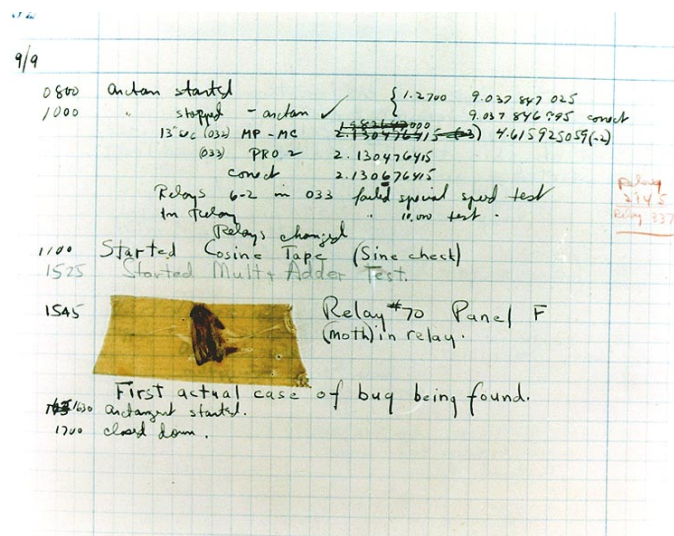 9/9
0800 arctan started { 1.2700 9.037 847 025
1000 " stopped - arctan ✓ 9.037 846 995 conect
13" uc (032) MP - MC 2.130476415 (-3) 4.615925059(-2)
(033) PRO 2 2.130476415
conect 2.130676415
Relays 6-2 in 033 failed special speed test
In relay " 10,000 test .
Relays changed
Relay
3145
Relay 337
1100 Started Cosine Tape (Sine check)
1525 Started Mult + Adder Test.
1545 Relay #70 Panel F
(moth) in relay.
First actual case of bug being found.
1630 arctangent started.
1700 closed down.